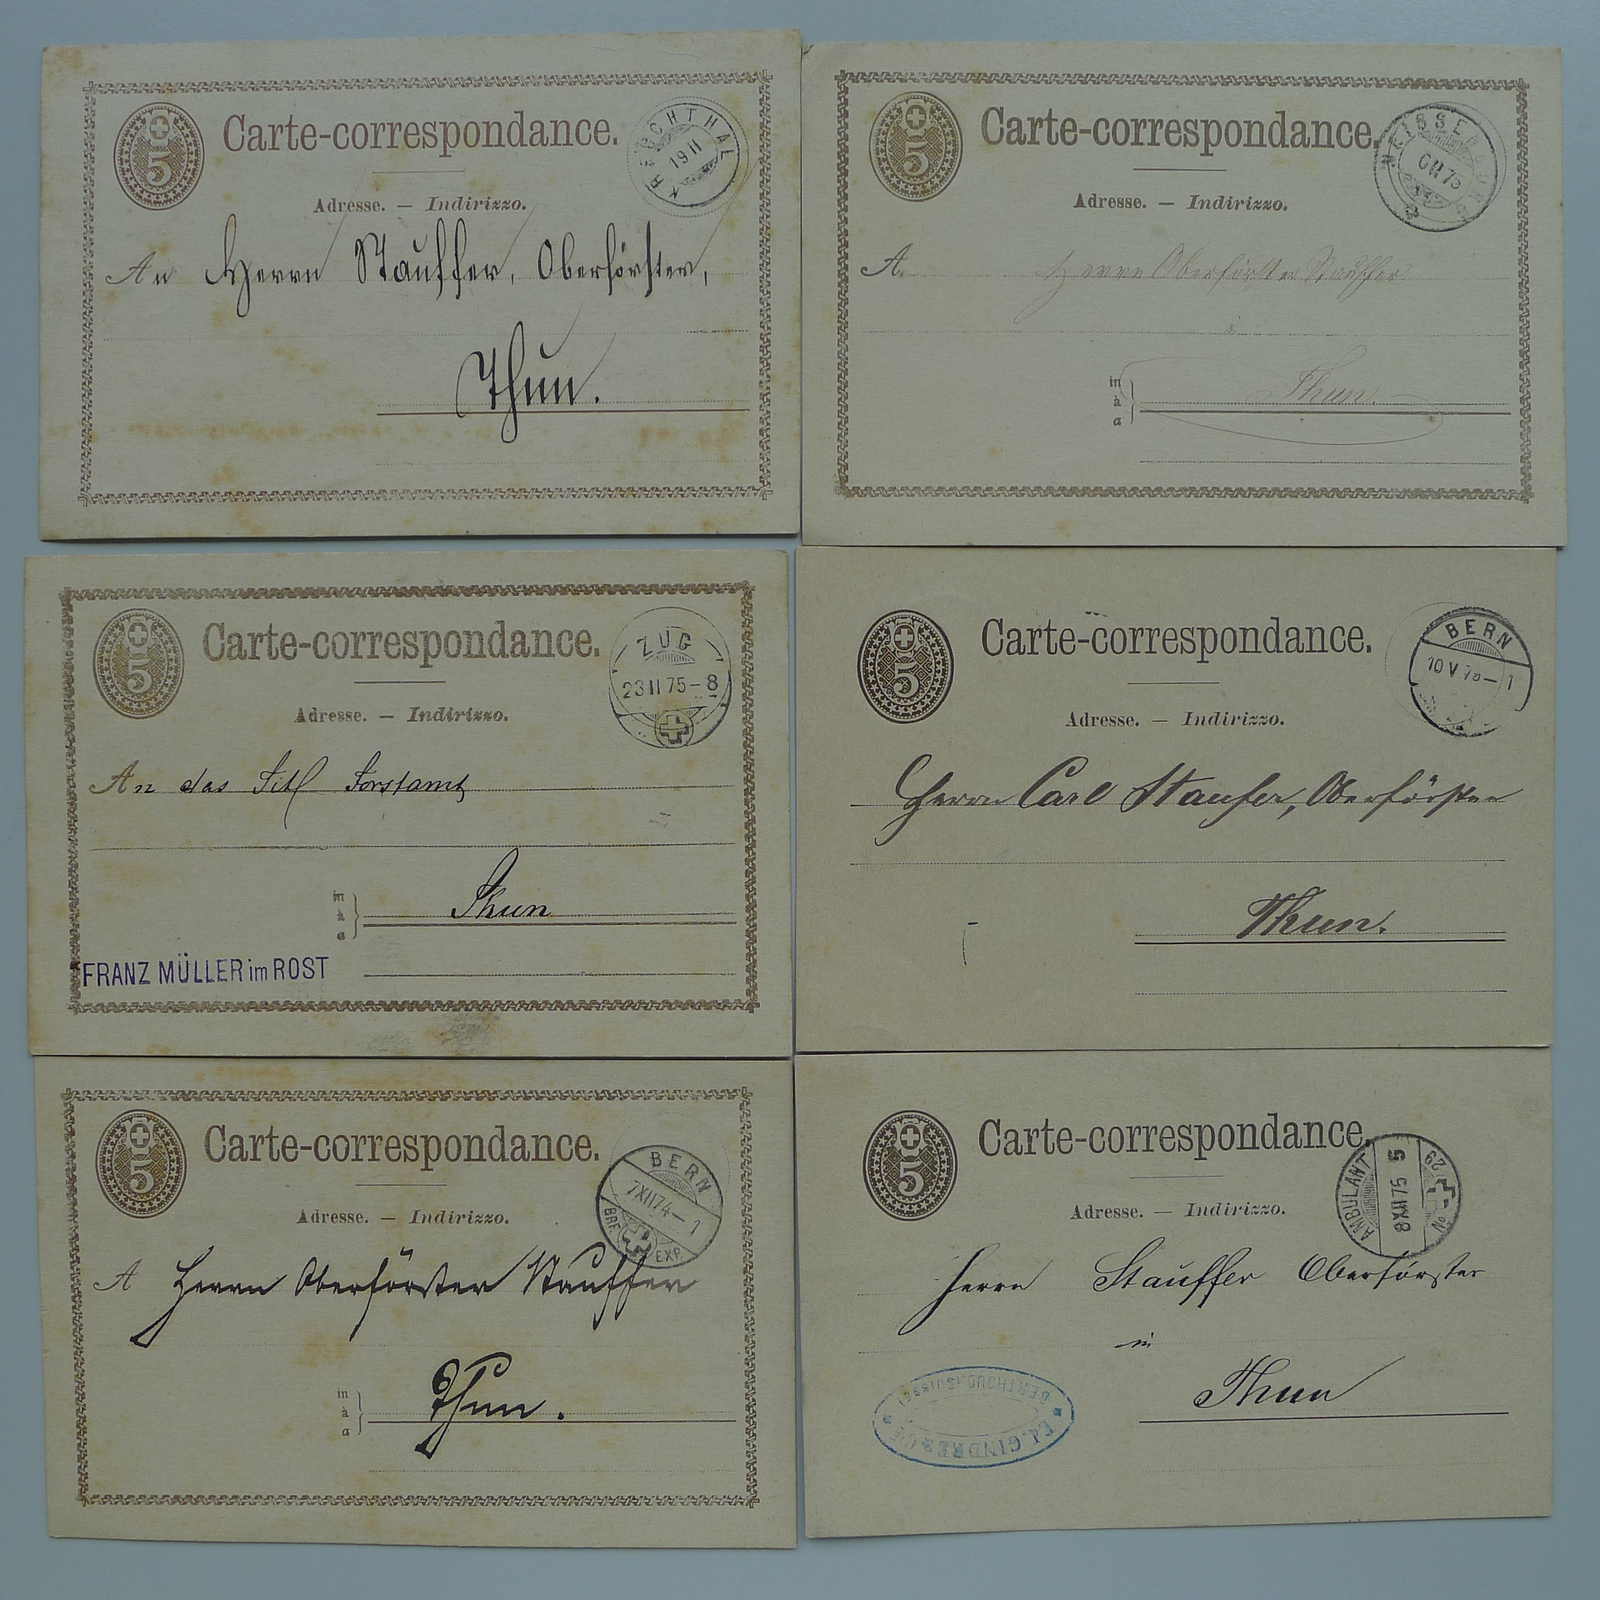 5
Carte-correspondance.
19 II
Adresse. — Indirizzo.
An Herrn Stauffer, Oberförster,
Thun.
5
Carte-correspondance.
Adresse. — Indirizzo.
A. Herrn Oberförster Stauffer
in
à
a
Thun.
5
Carte-correspondance.
ZUG
23 II 75 – 8
Adresse. — Indirizzo.
An das Titl Forstamt
in
à
a
Thun
FRANZ MÜLLER im ROST
5
Carte-correspondance.
BERN
Adresse. — Indirizzo.
Herrn Carl Staufer, Oberförster
Thun.
5
Carte-correspondance.
BERN
7 XII 74 – 1
BRF. EXP.
Adresse. — Indirizzo.
A Herrn Oberförster Stauffer
in
à
a
Thun.
5
Carte-correspondance.
AMBULANT
8 XII 75 5
No 29
Adresse. — Indirizzo.
Herrn Stauffer Oberförster
in
Thun